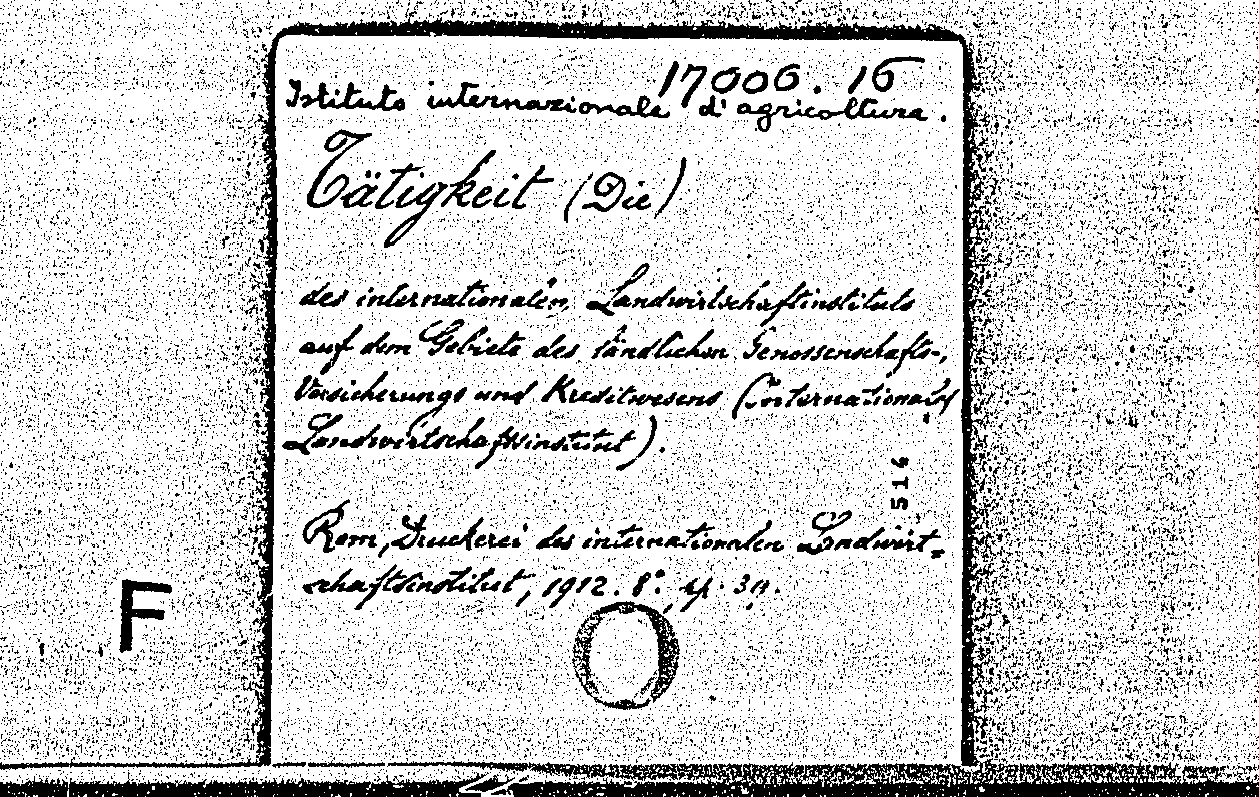 17006. 16
Istituto internazionale d'agricoltura.
Tätigkeit (Die)
des internationalen Landwirtschaftinstituts
auf dem Gebiete des ländlichen Genossenschafts-,
Versicherungs und Kreditwesens (Internationales
Landwirtschaftsinstitut).
514
Rom, Druckerei des internationalen Landwirt-
schaftsinstitut, 1912. 8°.
F